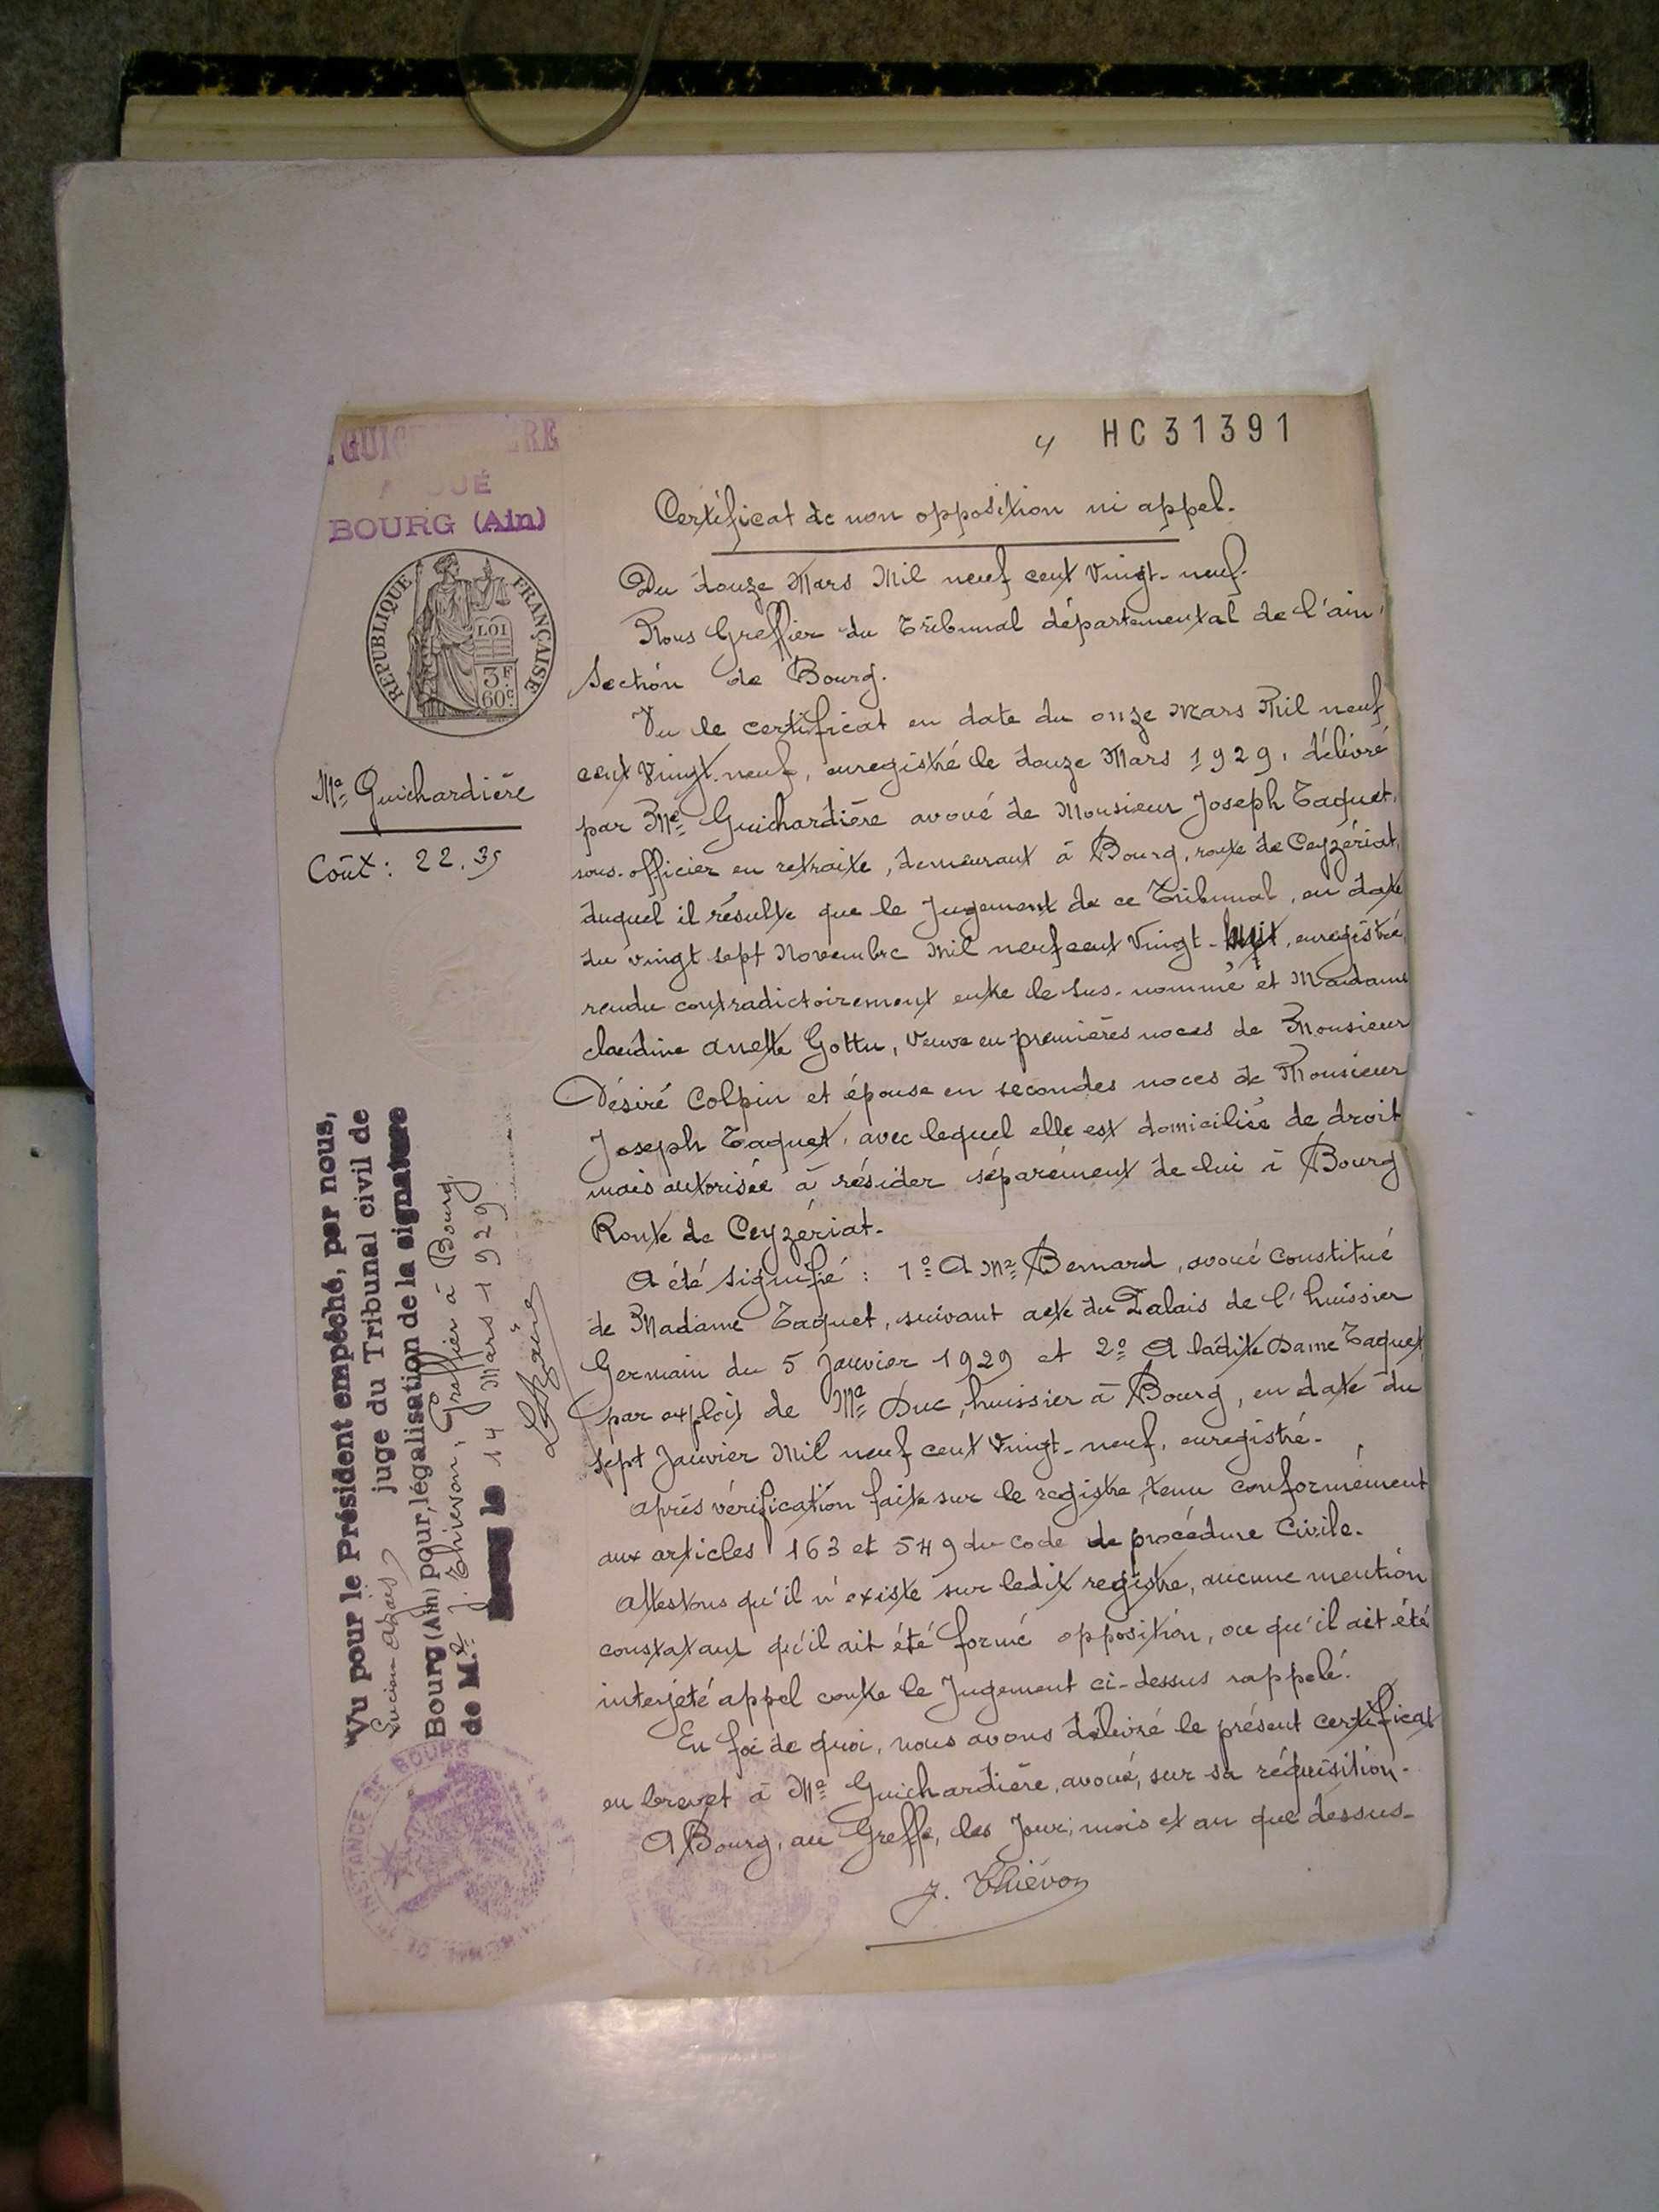 BOURG (Ain)
RÉPUBLIQUE FRANÇAISE
LOI
3F
60c
Me Guichardière
Coût : 22.35
4 HC31391
Certificat de non opposition ni appel.
Du douze Mars Mil neuf cent Vingt-neuf.
Nous Greffier du Tribunal départemental de l'ain,
Section de Bourg.
Vu le certificat en date du onze Mars Mil neuf
cent Vingt-neuf, enregistré le douze Mars 1929, délivré
par Me Guichardière avoué de Monsieur Joseph Taquet,
sous-officier en retraite, demeurant à Bourg, route de Ceyzériat,
duquel il résulte que le Jugement de ce Tribunal, en date
du vingt sept Novembre Mil neuf cent Vingt-huit, enregistré,
rendu contradictoirement entre le sus-nommé et Madame
claudine anette Gottu, Veuve en premières noces de Monsieur
Désiré Colpin et épouse en secondes noces de Monsieur
Joseph Taquet, avec lequel elle est domiciliée de droit
mais autorisée à résider séparément de lui à Bourg
Route de Ceyzériat.
A été signifié : 1º A Me Bernard, avoué constitué
de Madame Taquet, suivant acte du Palais de l'huissier
Germain du 5 Janvier 1929 et 2º A ladite Dame Taquet
par exploit de Me Duc, huissier à Bourg, en date du
sept Janvier Mil neuf cent Vingt-neuf, enregistré.
après vérification faite sur le registre, tenu conformément
aux articles 163 et 549 du code de procédure Civile.
attestons qu'il n'existe sur ledit registre, aucune mention
constatant qu'il ait été formé opposition, ou qu'il ait été
interjeté appel contre le Jugement ci-dessus rappelé.
En foi de quoi, nous avons délivré le présent certificat
en brevet à Me Guichardière, avoué, sur sa réquisition.
A Bourg, au Greffe, les Jour, mois et an que dessus.
J. Thiévon
Vu pour le Président empêché, par nous,
juge du Tribunal civil de
Bourg (Ain) pour légalisation de la signature
de M.e J. Thiévon, Greffier à Bourg.
le 14 Mars 1929